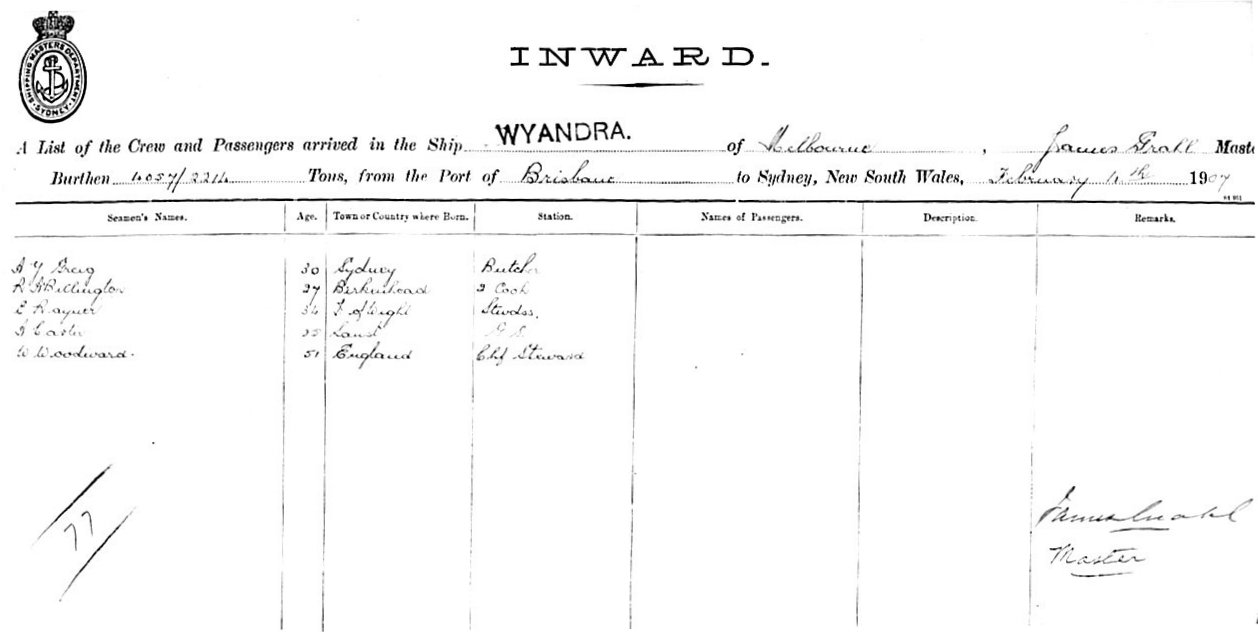 SHIPPING MASTERS DEPARTMENT
SYDNEY
INWARD.
A List of the Crew and Passengers arrived in the Ship WYANDRA. of Melbourne, James Maste
Burthen 4057/2214 Tons, from the Port of Brisbane to Sydney, New South Wales, February 4th 1907
Seamen's Names. Age. Town or Country where Born. Station. Names of Passengers. Description. Remarks.
A Y Greig 30 Sydney Butcher
Billington 27 Birkenhead 2 Cook
E Rayner 34 I of Wight Stwdss.
25
W Woodward. 51 England Chf Steward
77
James
Master